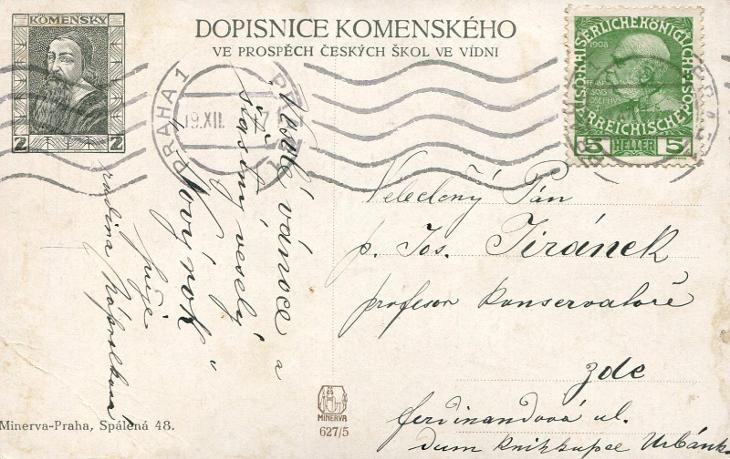 KOMENSKÝ
2 2
DOPISNICE KOMENSKÉHO
VE PROSPĚCH ČESKÝCH ŠKOL VE VÍDNI
PRAHA 1
19.XII.
KAISERLICHE KÖNIGLICHE
1908
ÖSTERREICHISCHE
5 HELLER 5
Veselé vánoce a
šťastný veselý
Nový rok"
přeje
rodina
Veledctěný Pán
p. Jos. Jiránek
profesor konservatoře
zde
Ferdinandova ul.
dum knihkupce Urbánk
MINERVA
627/5
Minerva-Praha, Spálená 48.